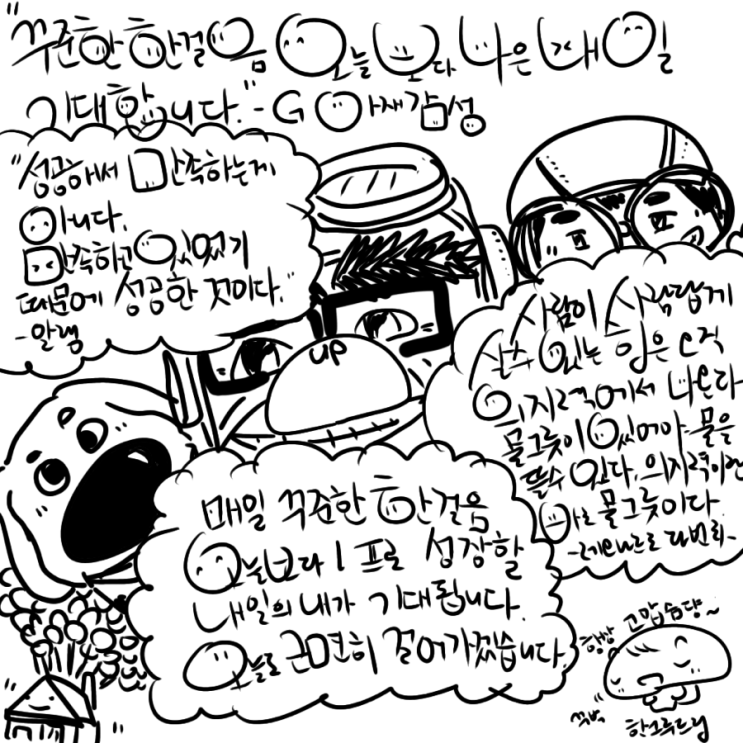 "꾸준한 한걸음 오늘보다 나은 내일
기대합니다." - G 아재감성
"성공해서 만족하는게
아니다.
만족하고 있었기
때문에 성공한 것이다."
-알랭
UP
사람이 사람답게
살수 있는 힘은 오직
의지력에서 나온다
물그릇이 있어야 물을
뜰수 있다. 의지력이란
바로 물그릇이다
-레오나르도 다빈치-
매일 꾸준한 한걸음
오늘보다 1프로 성장할
내일의 내가 기대됩니다.
오늘도 군면히 걸어가겠습니다.
항상 고맙습니당~
꾸벅
한그루드림